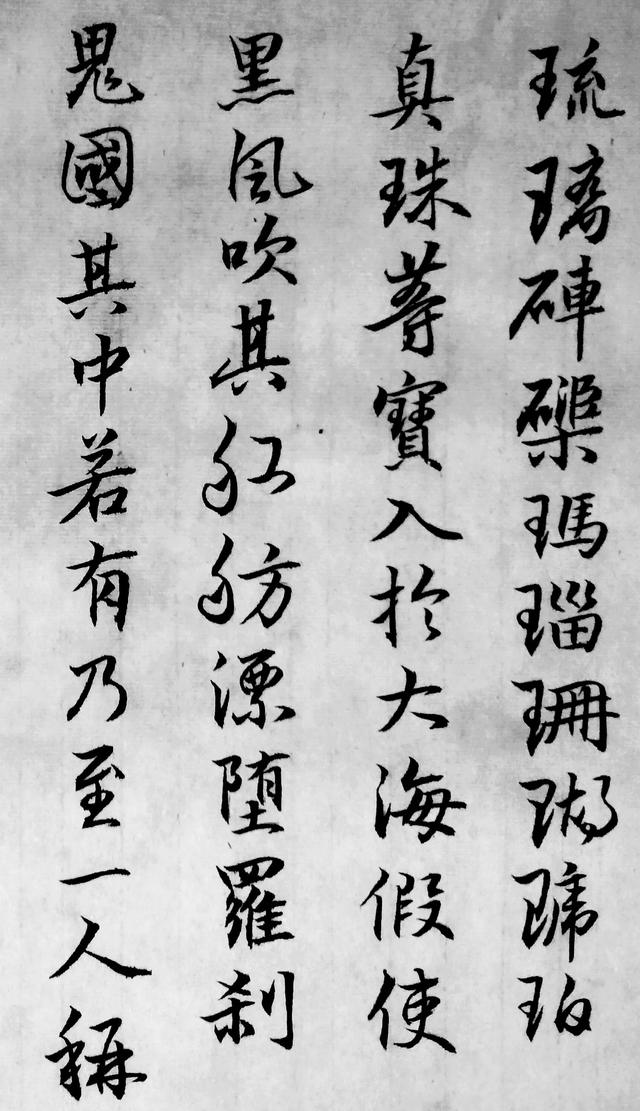 琉璃硨磲瑪瑙珊瑚琥珀
真珠等寶入於大海假使
黑風吹其舡舫漂墮羅剎
鬼國其中若有乃至一人稱